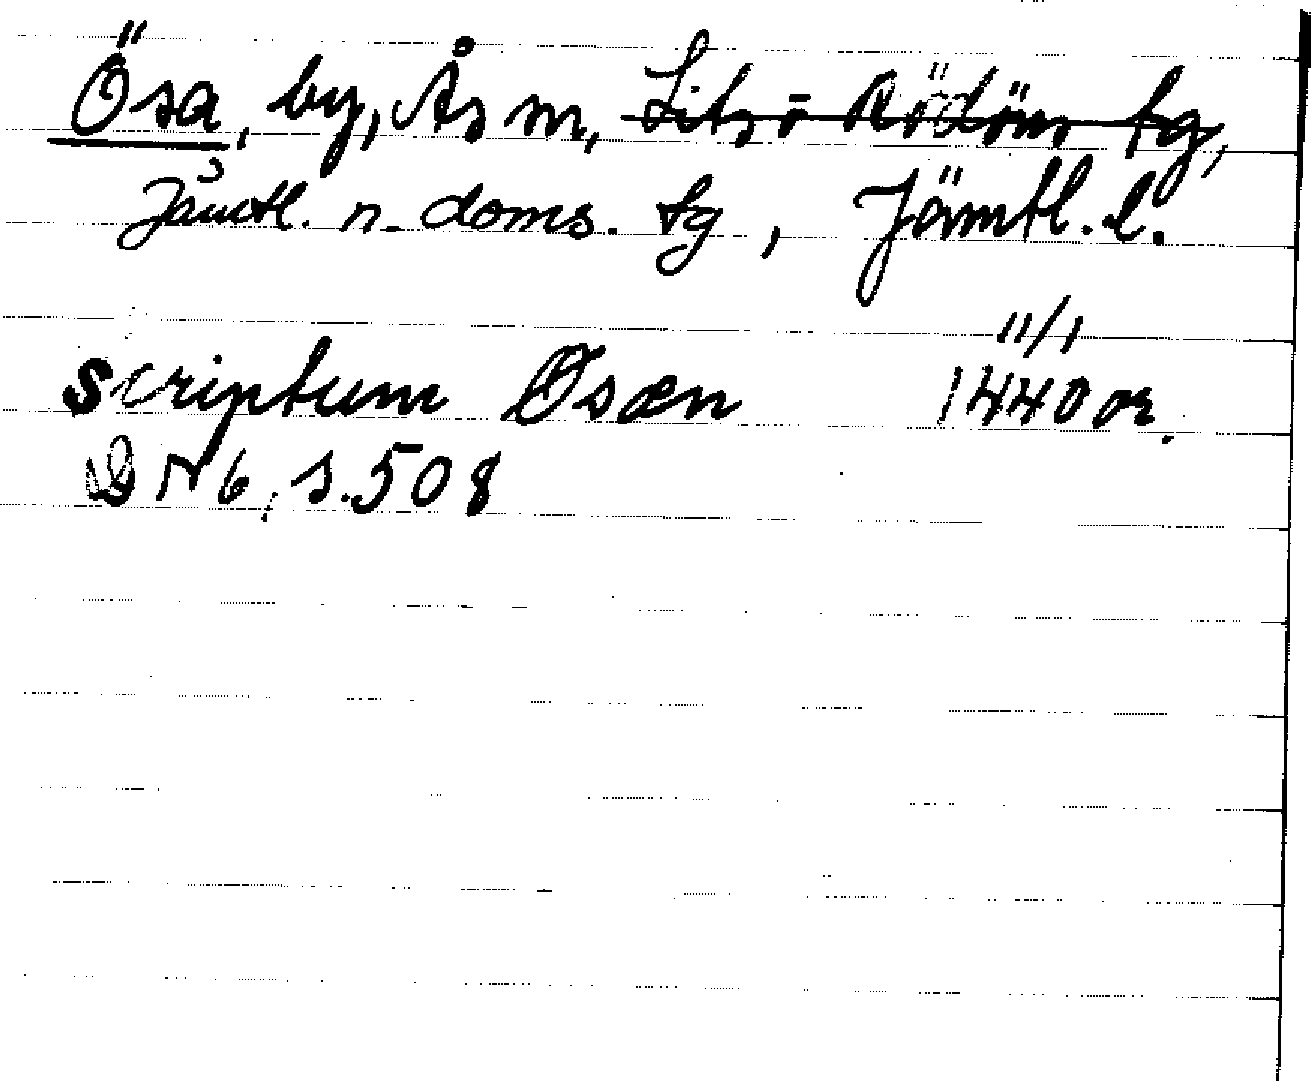 Ösa, by, Ås sn, Lits o Rödöns tg,
Jämtl. n. doms. tg, Jämtl. l.
11/1
scriptum Øsæn 1440 or.
DN 6, s. 508